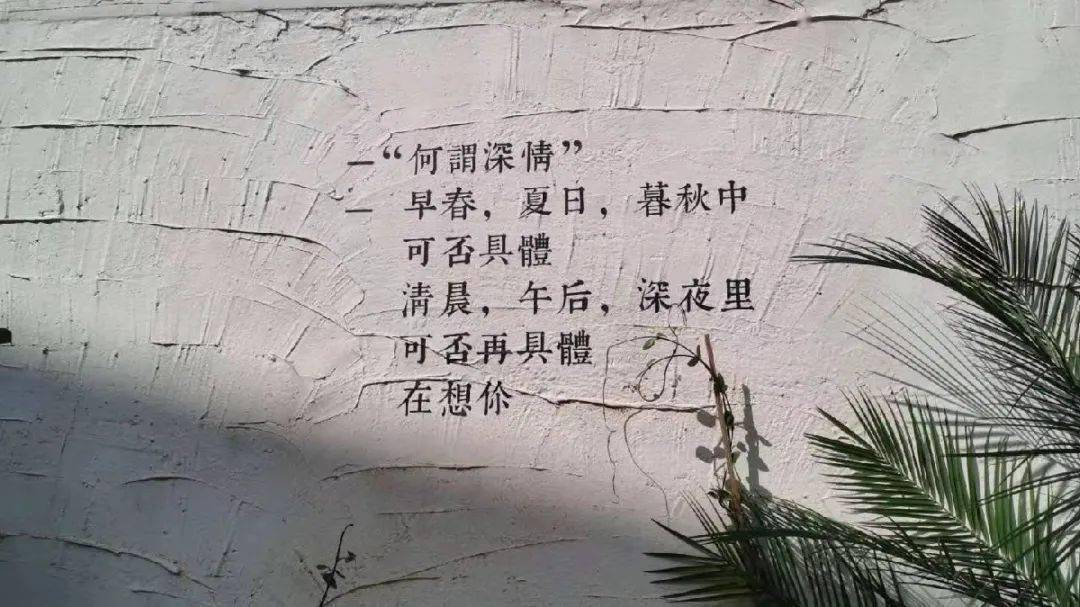 —“何謂深情”
— 早春，夏日，暮秋中
可否具體
清晨，午后，深夜里
可否再具體
在想你